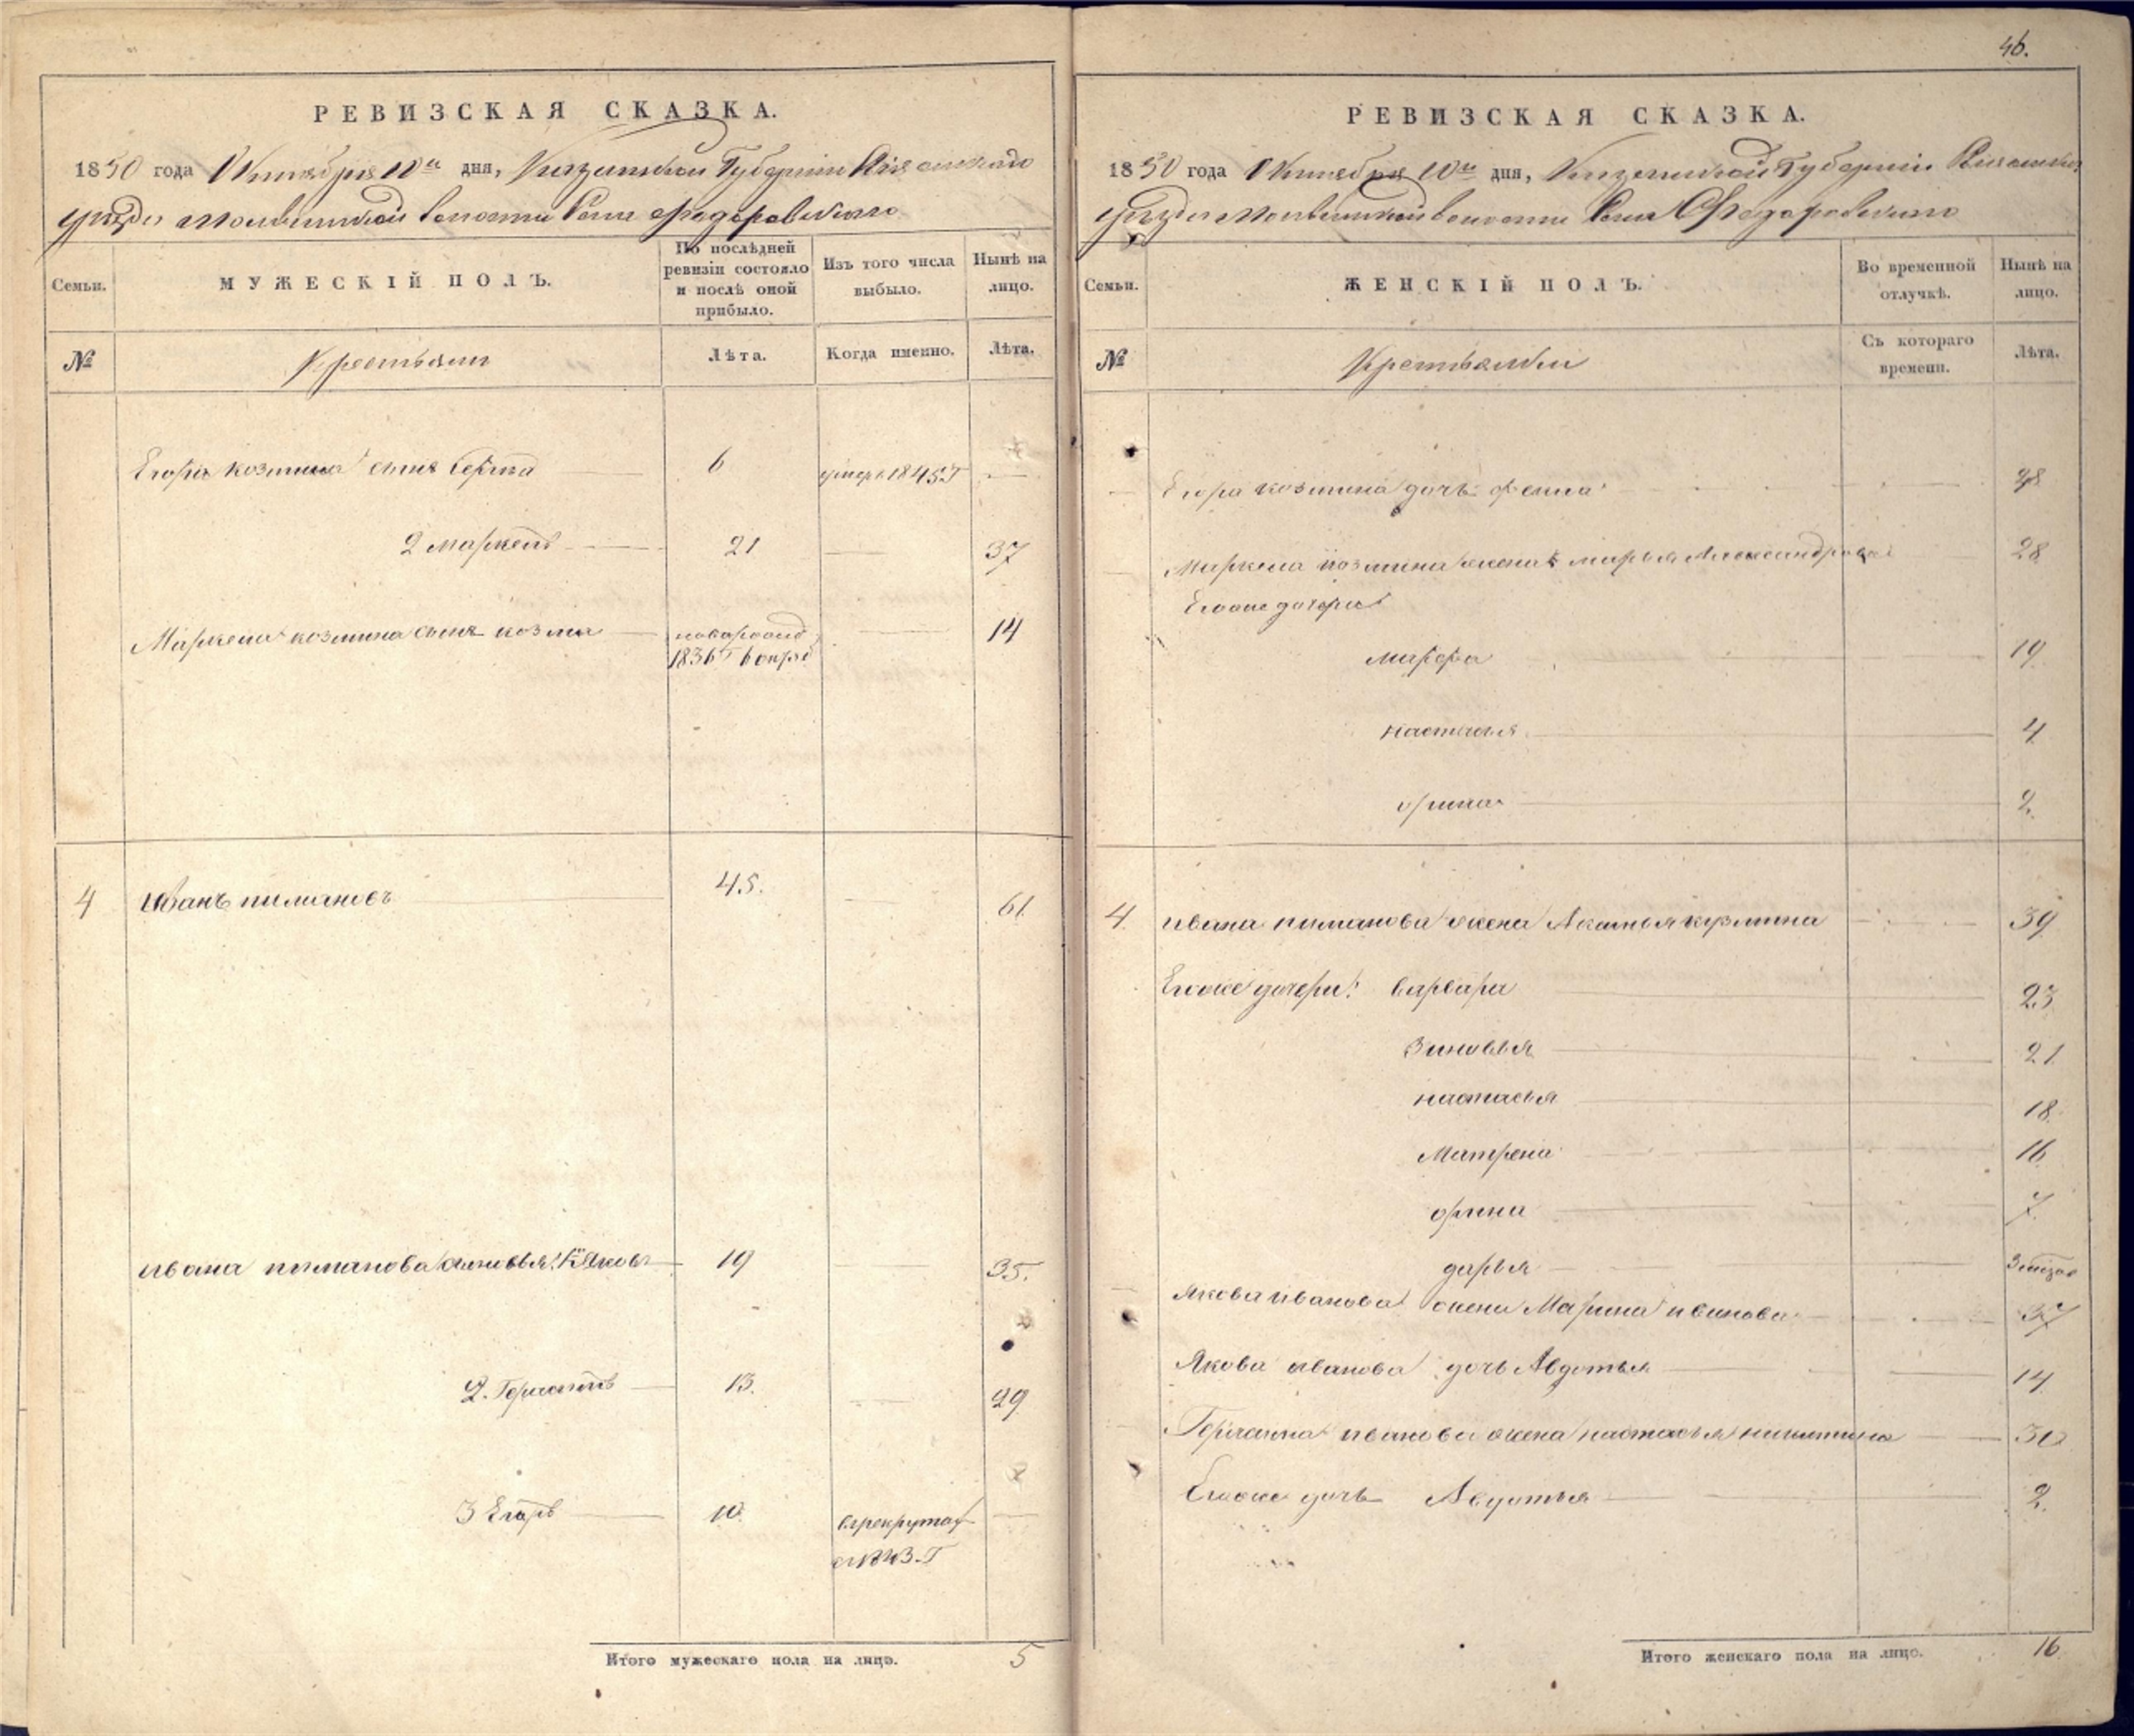 РЕВИЗСКАЯ СКАЗКА.
1850 года Октября 10го дня, Казанской Губернии
уезда волости Села Федоровскаго
Семьи.
МУЖЕСКІЙ ПОЛЪ.
По послѣдней ревизіи состояло и послѣ оной прибыло.
Изъ того числа выбыло.
Нынѣ на лицо.
№
Крестьяни
Лѣта.
Когда именно.
Лѣта.
Егора козмина сынъ Сергѣй 6 умеръ 1845 Г —
2 Маркелъ 21 — 37
Маркела козмина сынъ козма новорожд — 14
1836 Г
4 иванъ пимановъ 45. — 61.
ивана пиманова сыновья: 1 Яковъ 19 35.
2. Герасимъ 13. — 29
3 Егоръ 10. врекруты —
Итого мужескаго пола на лицо. 5
46.
РЕВИЗСКАЯ СКАЗКА.
1850 года Октября 10го дня, Казанской Губернии
уезда волости Села Федоровскаго
Семьи.
ЖЕНСКІЙ ПОЛЪ.
Во временной отлучкѣ.
Нынѣ на лицо.
№
Крестьянки
Съ котораго времени.
Лѣта.
Егора козмина дочь 28
Маркела козмина жена марья Александрова 28
Егоже дочери
марфа 19
настасья 4
орина 2.
4. ивана пиманова жена Акулина кузмина 39
Егоже дочери: варвара 23
Зиновья 21
настасья 18.
Матрена 16
орина 7.
дарья
Якова иванова жена Марина иванова 37
Якова иванова дочь Авдотья 14
Герасима иванова жена настасья никитина 30
Егоже дочь Авдотья 2.
Итого женскаго пола на лицо. 16